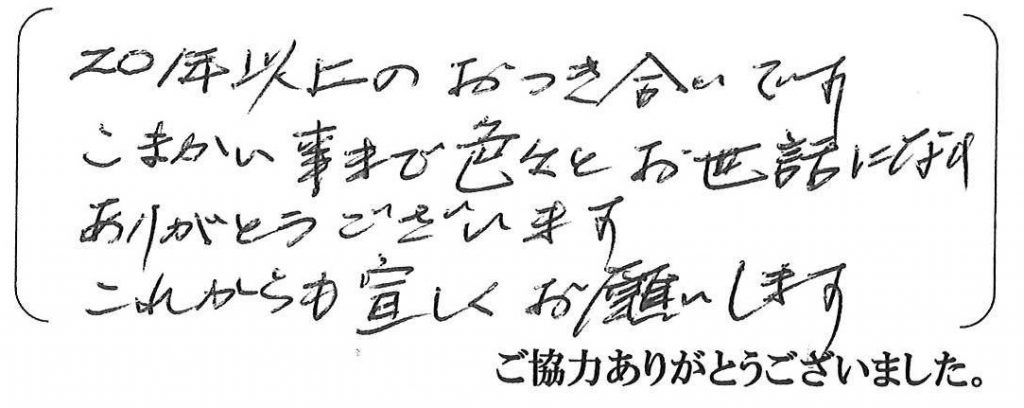 20年以上のおつき合いです
こまかい事まで色々とお世話になり
ありがとうございます
これからも宜しくお願いします
ご協力ありがとうございました。